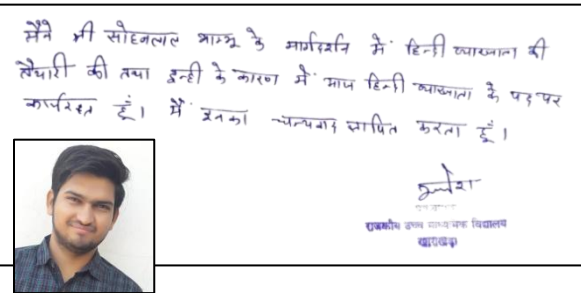 मैने श्री सोहनलाल भाम्भू के मार्गदर्शन में हिन्दी व्याख्याता की
तैयारी की तथा इन्ही के कारण मैं आज हिन्दी व्याख्याता के पद पर
कार्यरत हूँ। मैं इनका धन्यवाद ज्ञापित करता हूँ।
राजकीय उच्च माध्यमिक विद्यालय